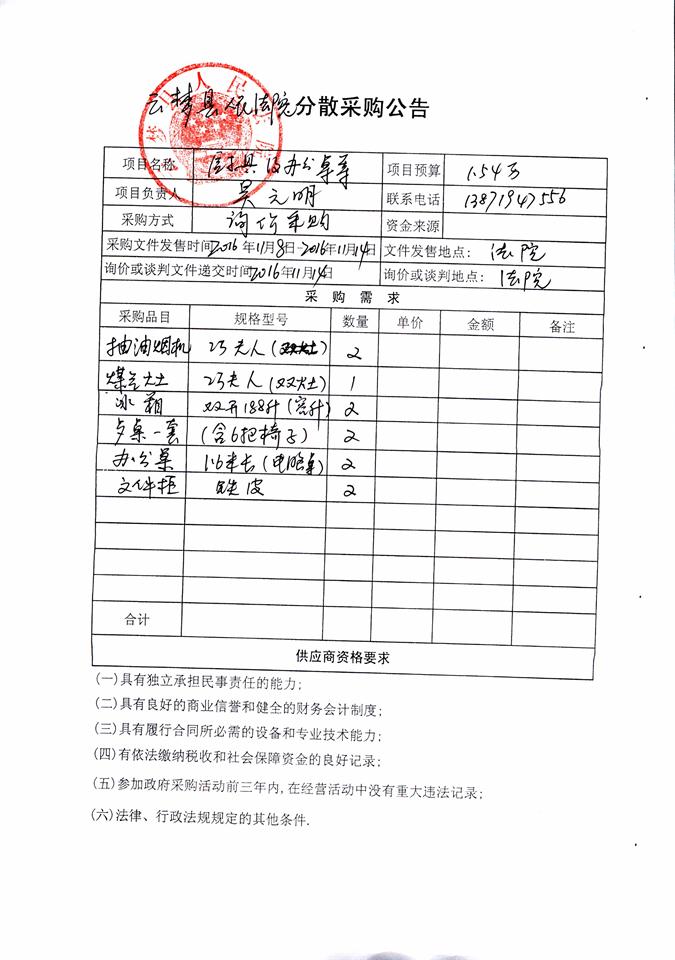 云梦县人民法院分散采购公告
项目名称 厨具及办公桌等 项目预算 1.54万
项目负责人 吴元明 联系电话 13871947556
采购方式 询价采购 资金来源
采购文件发售时间2016年11月8日-2016年11月14日 文件发售地点: 法院
询价或谈判文件递交时间2016年11月14日 询价或谈判地点: 法院
采 购 需 求
采购品目 规格型号 数量 单价 金额 备注
抽油烟机 巧夫人 2
煤气灶 巧夫人(双灶) 1
冰箱 双开188升 2
桌一套 (含6把椅子) 2
办公桌 1.6米长(电脑桌) 2
文件柜 铁皮 2
合计
供应商资格要求
(一)具有独立承担民事责任的能力;
(二)具有良好的商业信誉和健全的财务会计制度;
(三)具有履行合同所必需的设备和专业技术能力;
(四)有依法缴纳税收和社会保障资金的良好记录;
(五)参加政府采购活动前三年内,在经营活动中没有重大违法记录;
(六)法律、行政法规规定的其他条件.